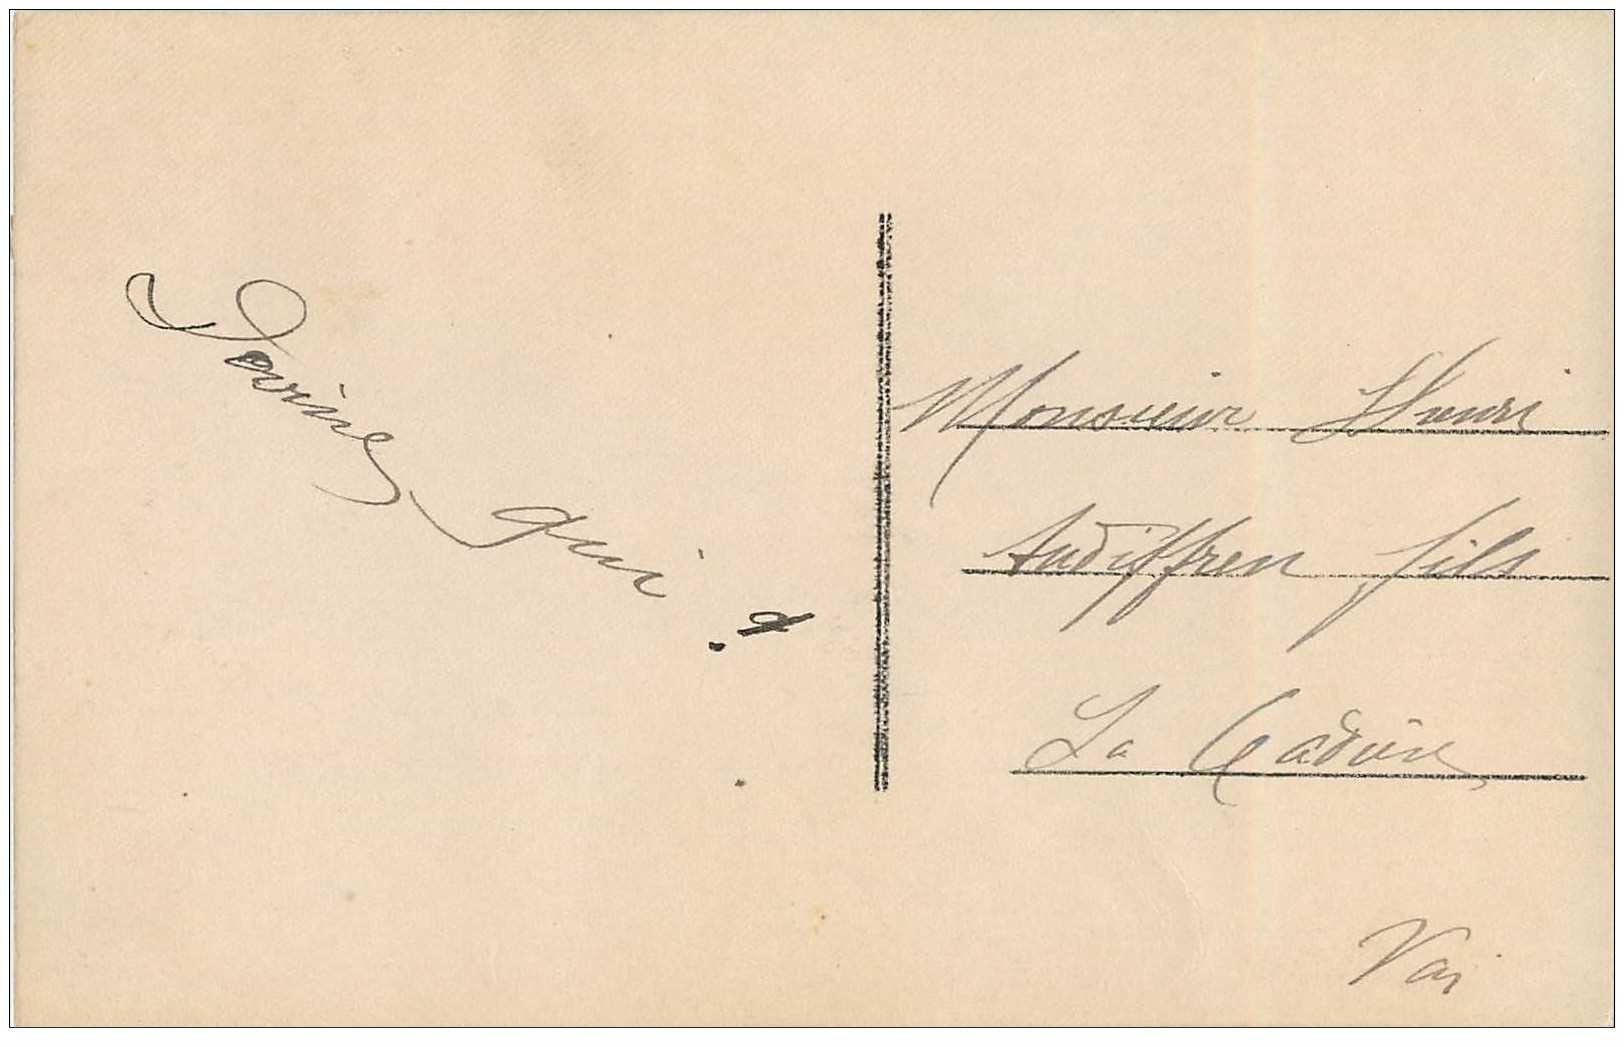 Devine qui ?
Monsieur Henri
Audiffren fils
La Cadière
Var